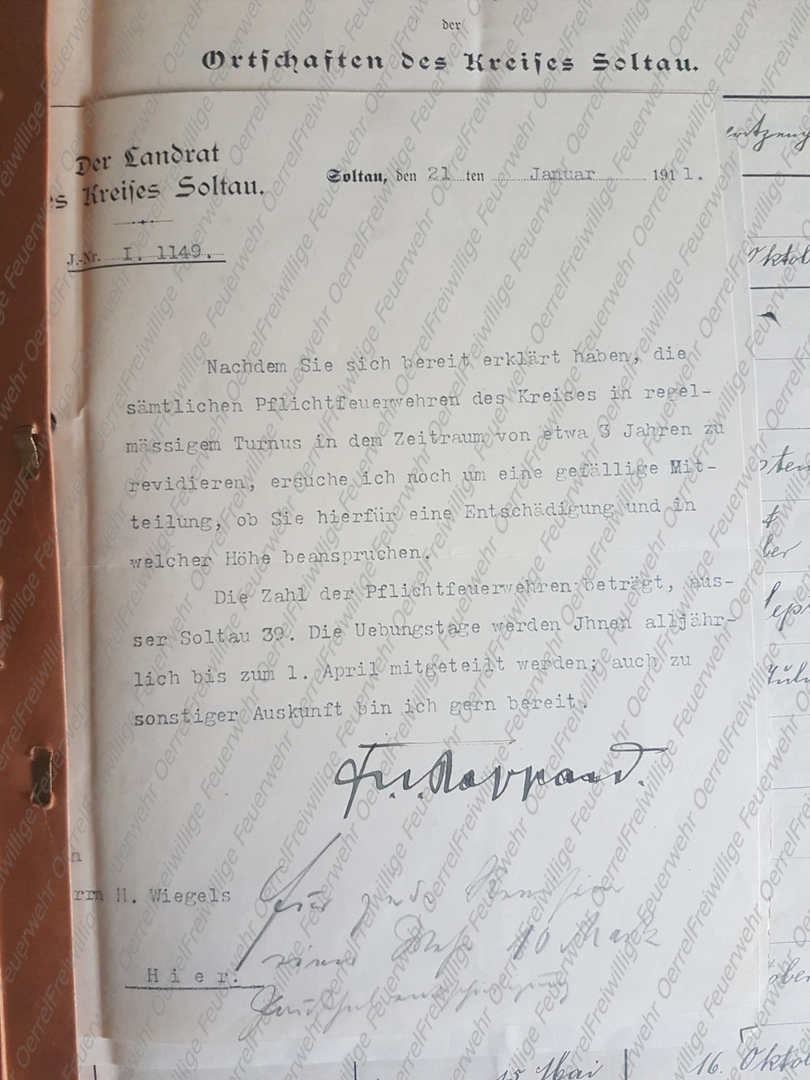 der
Ortschaften des Kreises Soltau.
Der Landrat
es Kreises Soltau.
Soltau, den 21 ten Januar 1911.
J.-Nr. I. 1149.
Nachdem Sie sich bereit erklärt haben, die
sämtlichen Pflichtfeuerwehren des Kreises in regel-
mässigem Turnus in dem Zeitraum von etwa 3 Jahren zu
revidieren, ersuche ich noch um eine gefällige Mit-
teilung, ob Sie hierfür eine Entschädigung und in
welcher Höhe beanspruchen.
Die Zahl der Pflichtfeuerwehren beträgt, aus-
ser Soltau 39. Die Uebungstage werden Jhnen alljähr-
lich bis zum 1. April mitgeteilt werden; auch zu
sonstiger Auskunft bin ich gern bereit.
n
rrn H. Wiegels
Hier.
für jede Revision
eine 10 Mark
15 Mai
16. Oktob
Freiwillige Feuerwehr Oerrel